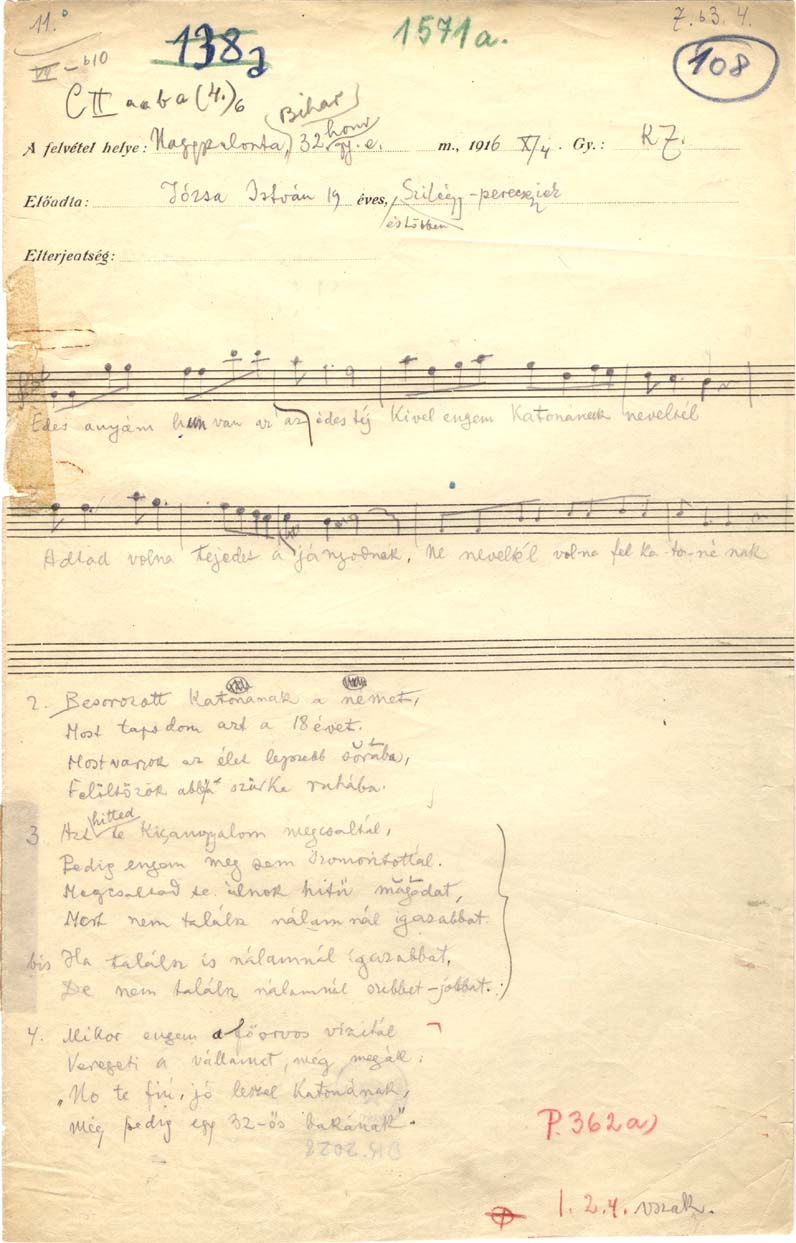 11.°
138a
1571a.
Z. 63. 4.
VI - b10
108
C II a a b a (4.)6
Bihar
honv
A felvétel helye: Nagyszalonta, 32. gy. e. m., 1916 X/4. Gy.: KZ.
Előadta: Józsa István 19 éves, Szilágy-pereczei
és többen
Elterjedtség:
Édes anyám hun van az az édes téj Kivel engem Katonának neveltél
Adtad volna tejedet a jányodnak, Ne neveltél vol-na fel ka-to-ná-nak
2. Besorozott Katonának a német,
Most taposom azt a 18 évet.
Most vagyok az élet legszebb sorába,
Felöltözök abba szürke ruhába.
hitted
3 Azt te Kisangyalom megcsaltál,
Pedig engem meg sem szomorítottál.
Megcsaltad te álnok hitű magadat,
Most nem találsz nálamnál igazabbat.
bis Ha találsz is nálamnál igazabbat,
De nem találsz nálamnál szebbet-jobbat.
4. Mikor engem a főorvos vizitál
Veregeti a vállamat, még megáll:
„No te fiú, jó leszel Katonának,
még pedig egy 32-ős bakának".
P. 362a)
1. 2. 4. vszak.